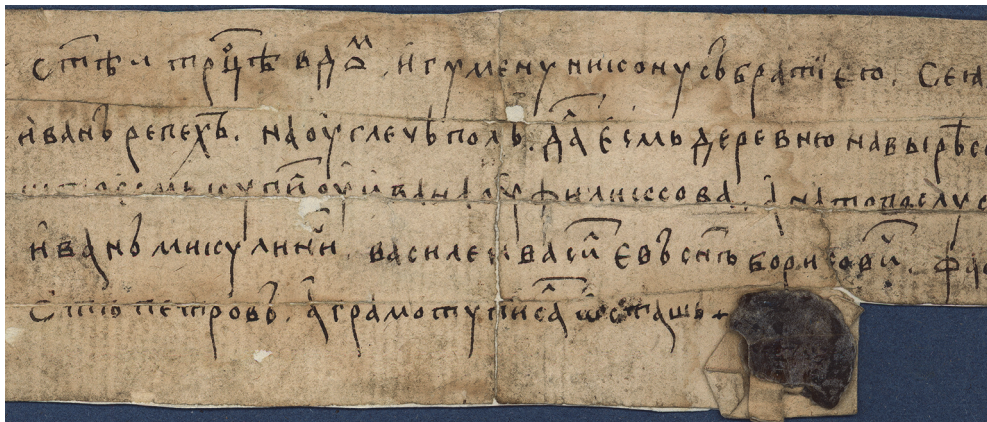 стѣи трⷪ҇цѣ в дⷨо игумену никону съ братїею. се ꙗ
иванъ репехъ. на оуглечѣ полѣ. дал есмь деревню на вырѣ
што есмь купил оу ивана оу филисова. а на то послус
иванъ микулинъ. василеи васил евъ снъ борисовъ. фло
стою петровъ. а грамоту писал ѡсташь